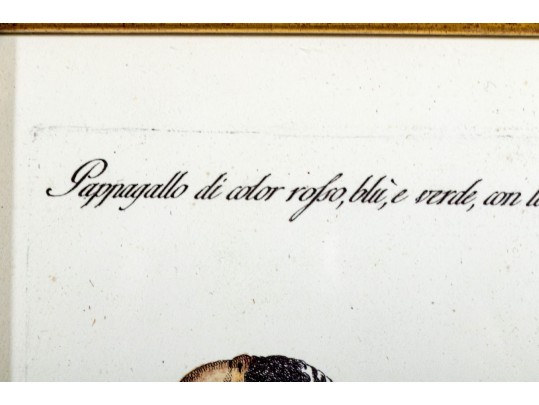 Pappagallo di color roſso, blù, e verde, con la